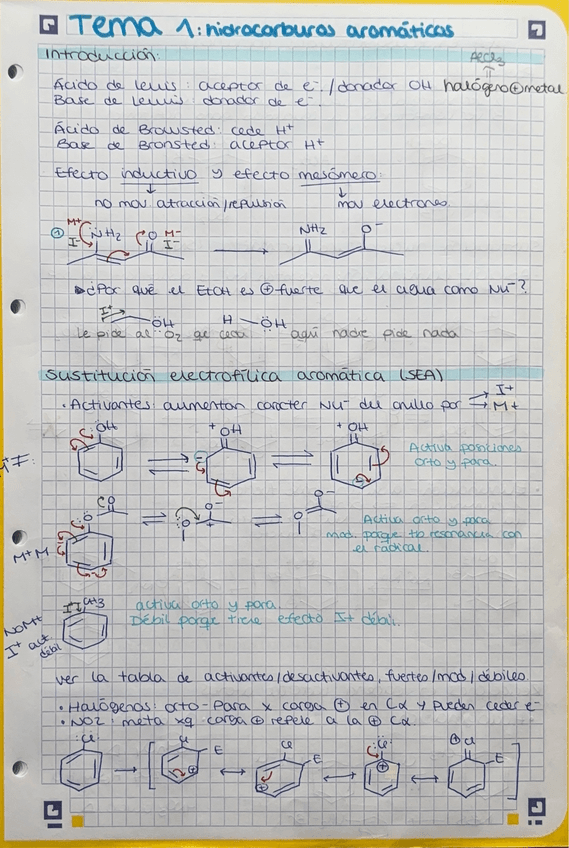 Tema 1: hidrocarburos aromáticos
Introducción:
AlCl3
Ácido de Lewis: aceptor de e-/donador OH halógeno⊕metal
Base de Lewis: donador de e-.
Ácido de Browsted: cede H+
Base de Bronsted: aceptor H+
Efecto inductivo y efecto mesómero:
no mov atracción/repulsión mov electrones.
① M+ I- NH2 O M- I- NH2 O-
¿Por qué el EtOH es ⊕ fuerte que el agua como Nu-?
I+ ÖH H ÖH
Le pide al O2 qe ceda aquí nadie pide nada
Sustitución electrofílica aromática (SEA)
· Activantes aumentan carácter Nu- del anillo por I+ M+
OH +OH +OH
Activa posiciones
orto y para.
O O O O- O O-
Activa orto y para
mod. porque tb resonancia con
el radical.
M+M
CH3
NoM+
I+ act
débil
activa orto y para.
Débil porque tiene efecto I+ débil.
ver la tabla de activantes/desactivantes, fuertes/mod/débiles
· Halógenos: orto-Para x carga ⊕ en Cα y pueden ceder e-
· NO2: meta xq carga ⊕ repele a la ⊕ Cα.
Cl Cl E Cl E Cl ⊕Cl E